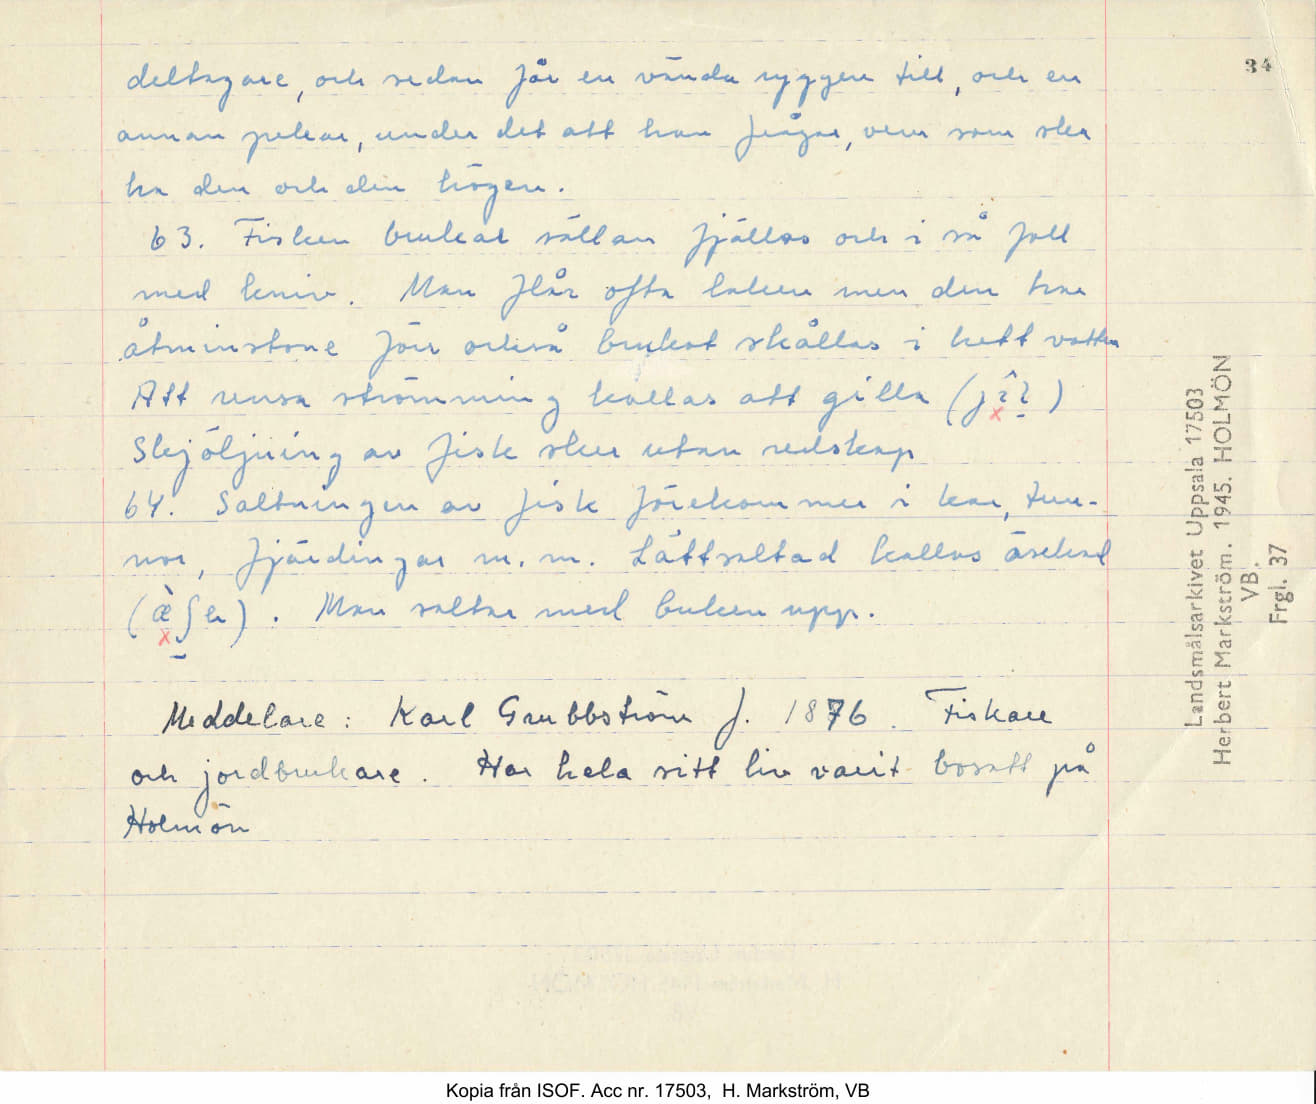 34
deltagare, och sedan får en vända ryggen till, och en
annan pekar, under det att han frågar, vem som ska
ha den och den högen.
63. Fisken brukar sällan fjällas och i så fall
med kniv. Man flår ofta laken men den har
åtminstone förr också brukat skållas i hett vatten
Att rensa strömming kallas att gilla
Sköljning av fisk sker utan redskap
64. Saltningen av fisk förekommer i kar, tun-
nor, fjärdingar m.m. Lättsaltad kallas
Man saltar med buken upp.
Meddelare: Karl Grubbström f. 1876. Fiskare
och jordbrukare. Har hela sitt liv varit bosatt på
Holmön
Landsmålsarkivet Uppsala 17503
Herbert Markström. 1945. HOLMÖN
VB.
Frgl. 37
Kopia från ISOF. Acc nr. 17503, H. Markström, VB